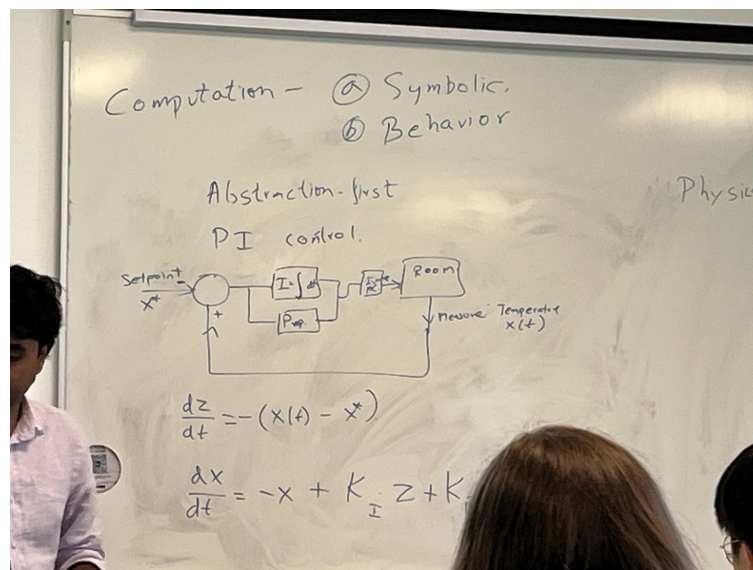 Computation - ⓐ Symbolic.
ⓑ Behavior
Abstraction-first
Physic
PI control.
Setpoint
x*
I=∫dt
Prop.
Room
+
-
measure Temperature
x(t)
dz/dt = -(x(t) - x*)
dx/dt = -x + K_I z + K